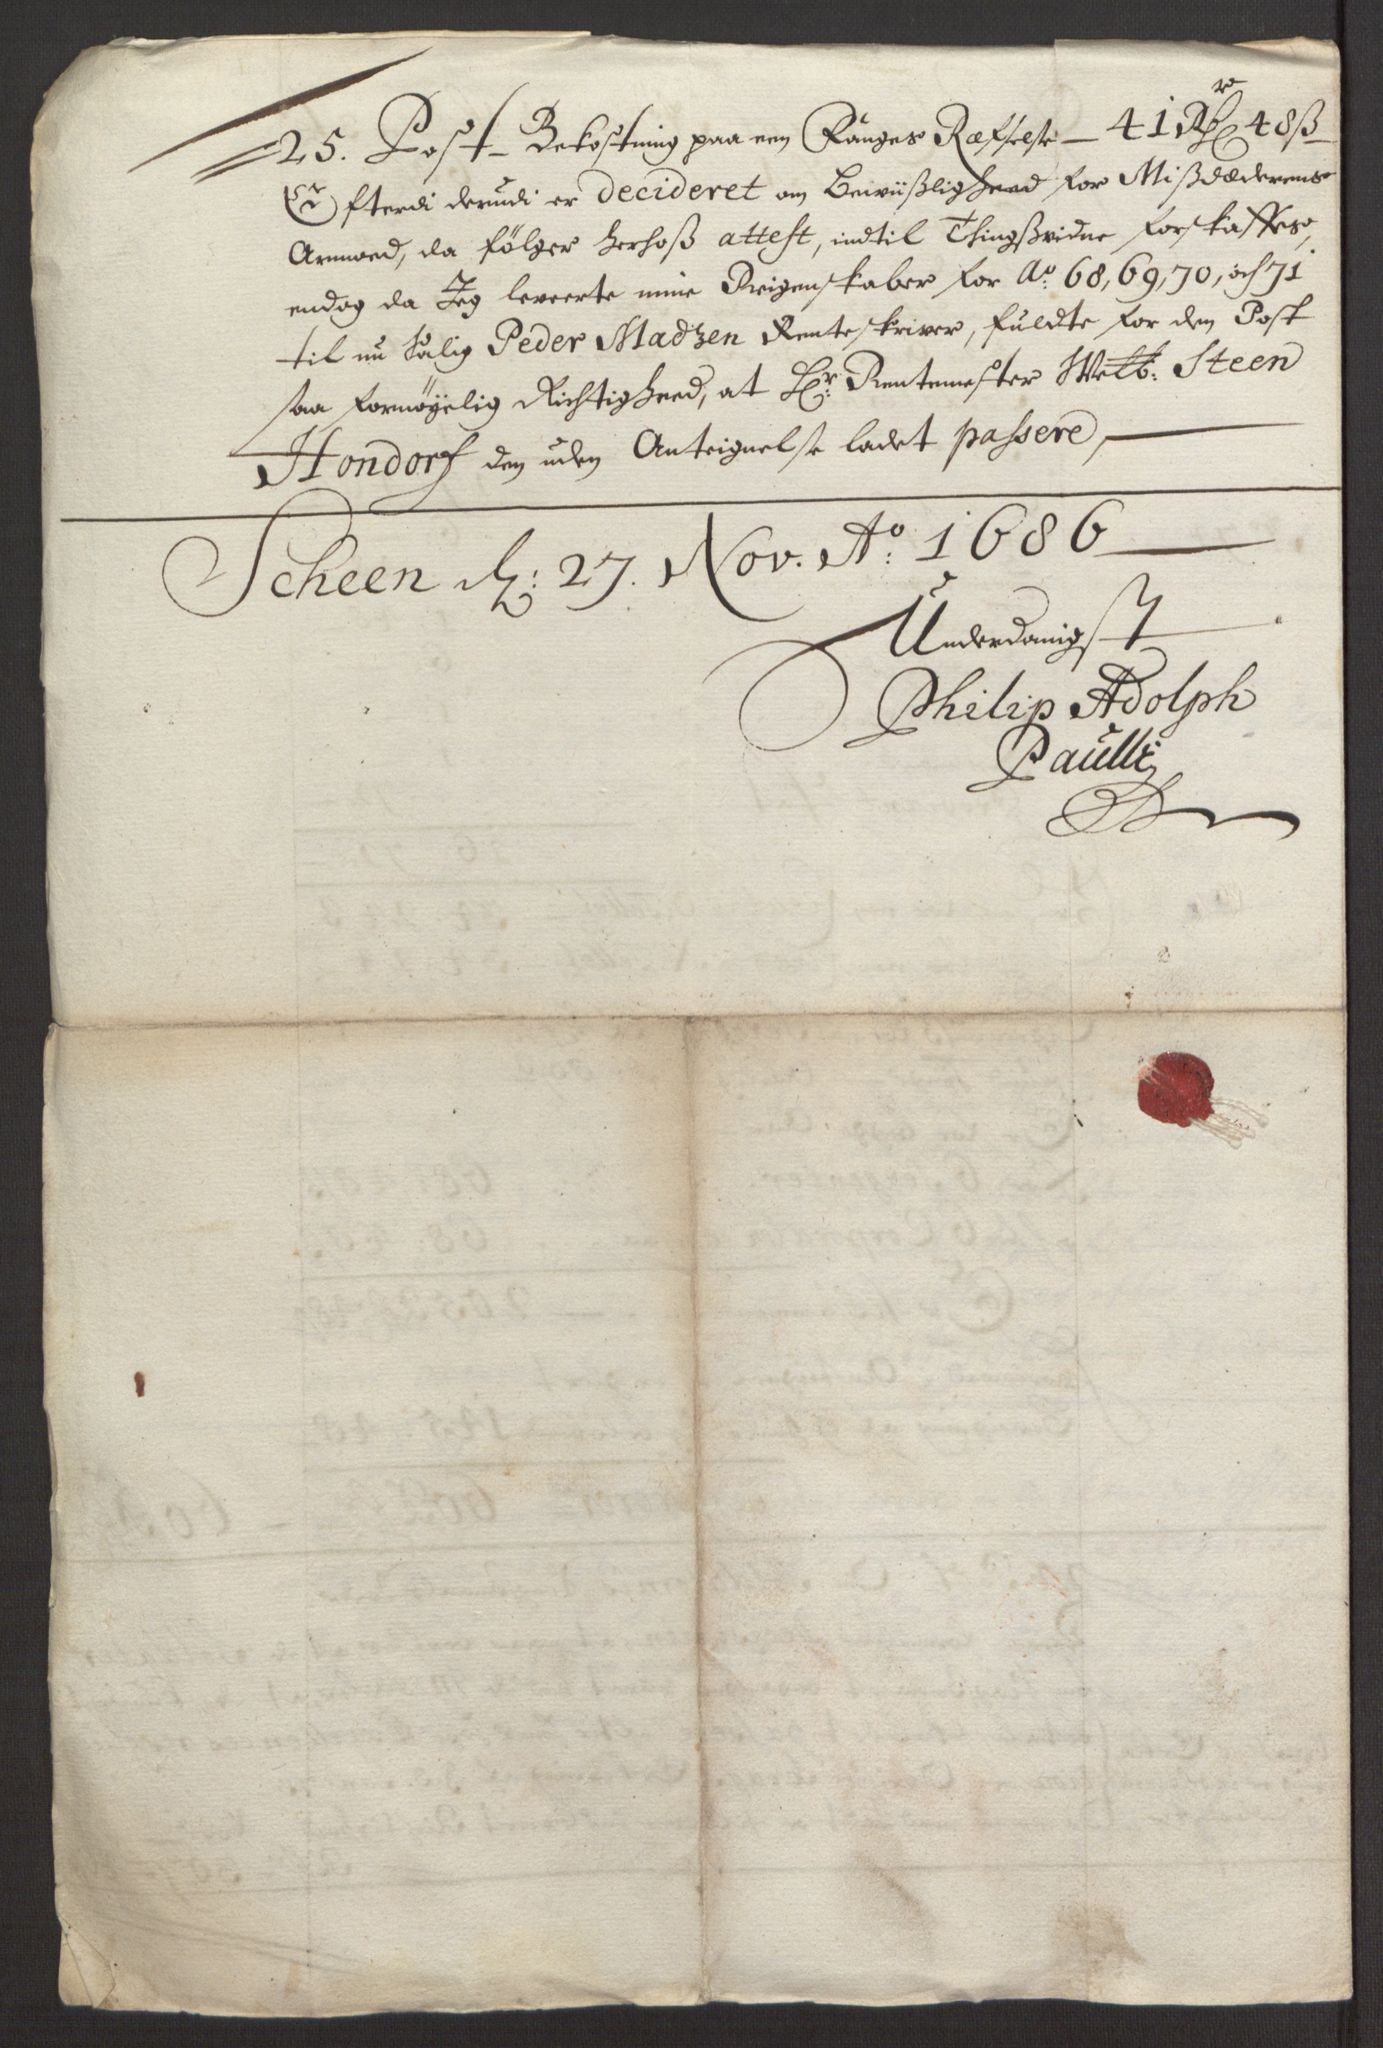 25. Post_ Bekostning paa een Fanges Ræffselse — 41 Rdr 48 ß
Efterdi derudi er decideret om Beviißligheed for Mißdæderens
Armoed, da følger herhoß attest, indtil Thingßvidne forskaffes,
endog da Jeg leverte mine Reigenskaber for Ao 68, 69, 70, och 71
til nu Salig Peder Madzen Renteskriver, fuldte for den Post
saa fornøyelig Richtigheed, at Hr: Rentemester Welb: Steen
Hondorf den uden Anteignelse ladet passere,
Scheen d: 27. Nov. Ao: 1686
Underdanigst
Philip Adolph
Paulli